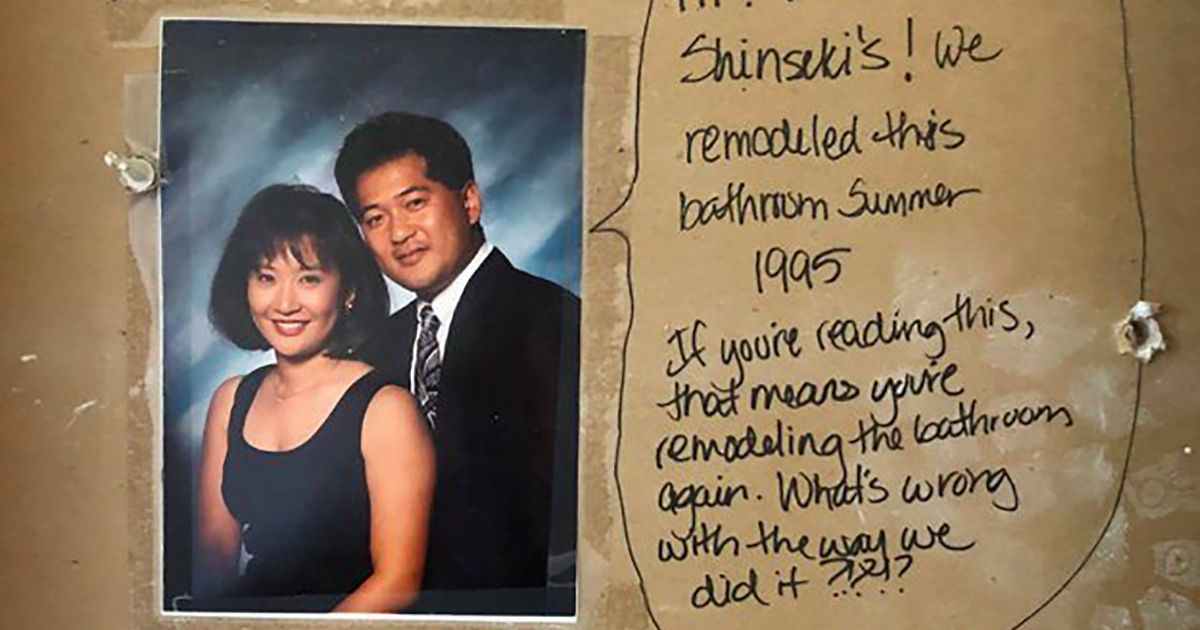 Shinseki's! We
remodeled this
bathroom Summer
1995
If you're reading this,
that means you're
remodeling the bathroom
again. What's wrong
with the way we
did it ?!?!?